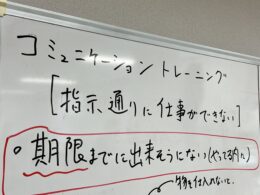 コミュニケーション トレーニング
[指示通りに仕事ができない]
・期限までに出来そうにない(やってる内に)
物を仕入れないと、